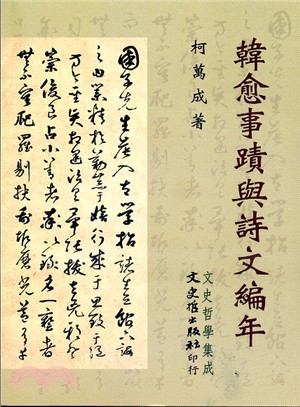 韓愈事蹟與詩文編年
柯萬成著
文史哲學集成
文史哲出版社印行
國子先生晨入太学招諸生立館下誨
之曰業精於勤荒于嬉行成于思毀于隨
方今聖賢相逢治具畢張拔去兇邪登
崇俊良占小善者率以録名一藝者
無不庸爬羅剔抉刮垢磨光蓋有幸